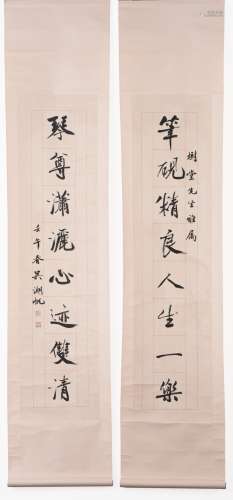 筆硯精良人生一樂
樹堂先生雅属
琴尊瀟灑心迹雙清
壬午春吳湖帆